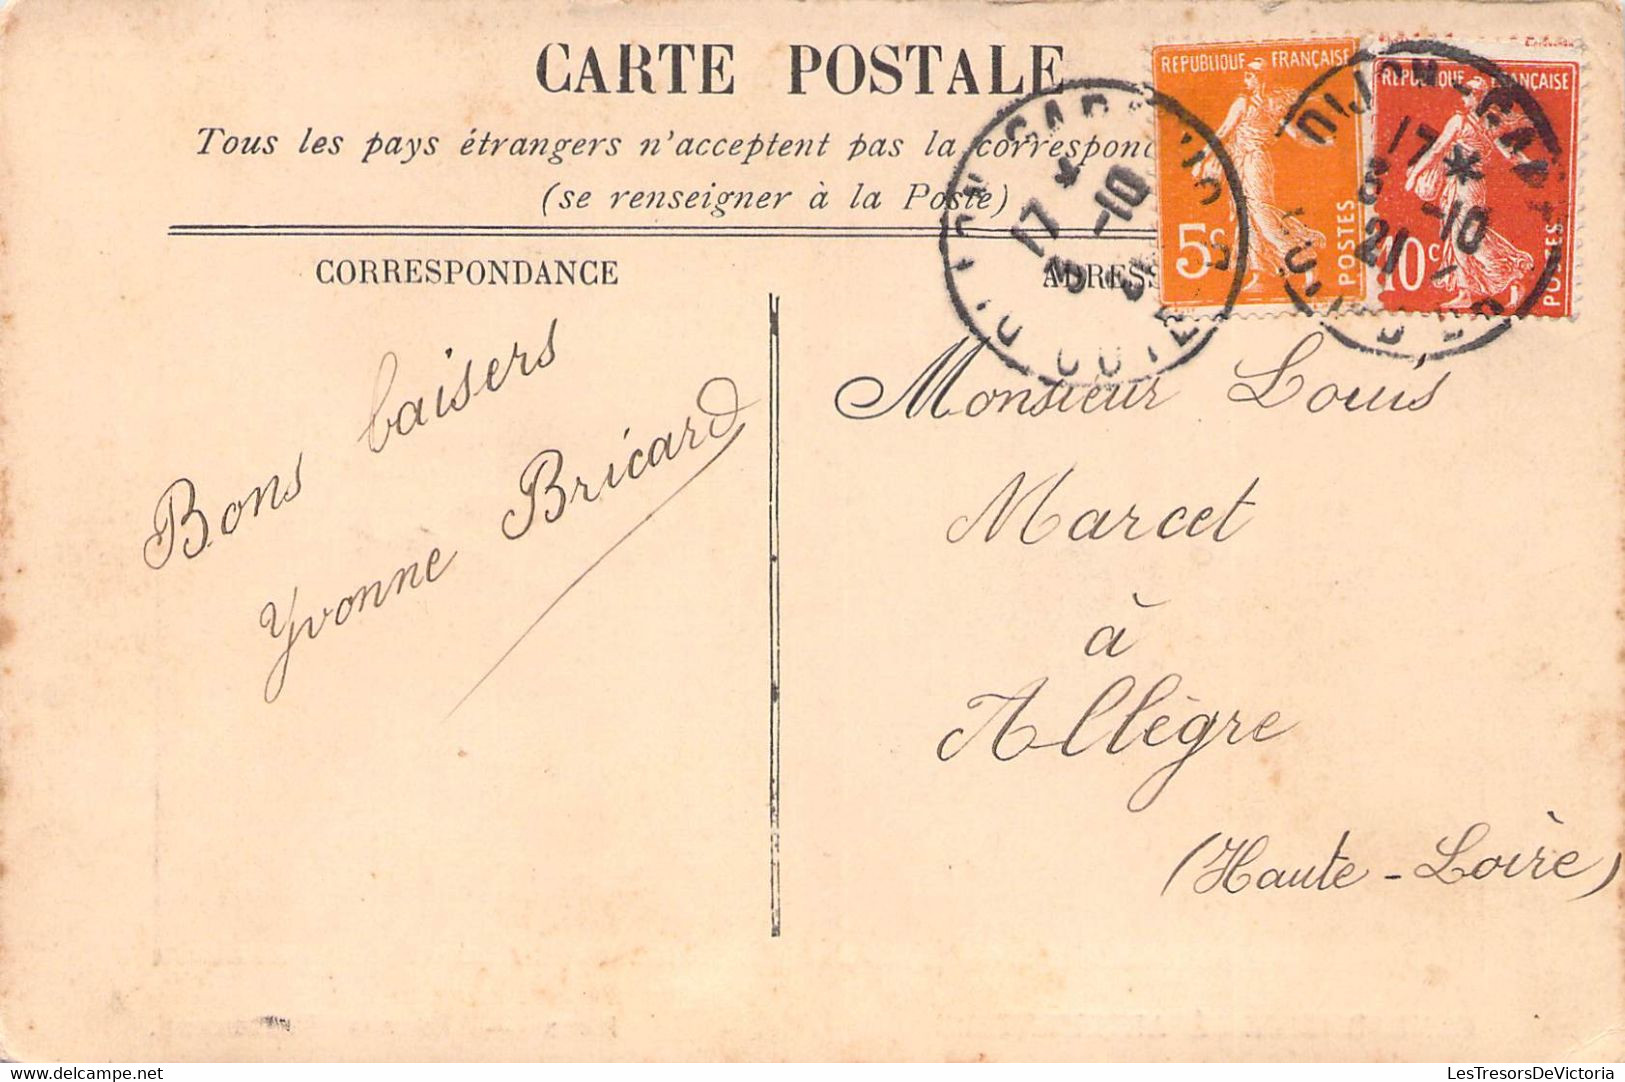 CARTE POSTALE
Tous les pays étrangers n'acceptent pas la
(se renseigner à la Poste)
CORRESPONDANCE
Bons baisers
Yvonne Bricard
REPUBLIQUE FRANÇAISE
5c
POSTES
REPUBLIQUE FRANÇAISE
10c
POSTES
17 *
-10
DIJON-GARE
17 *
-10
21
Monsieur Louis
Marcet
à
Allègre
(Haute-Loire)
LesTresorsDeVictoria.com
LesTresorsDeVictoria